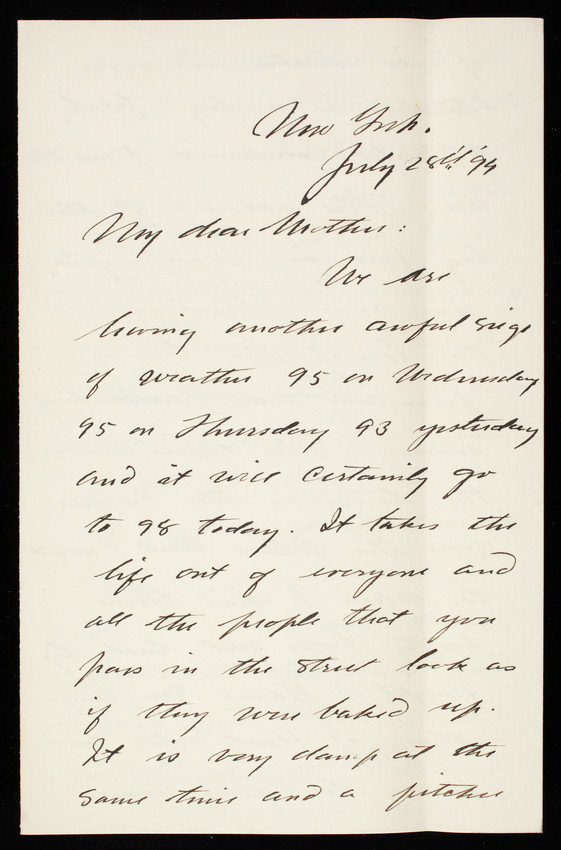 New York.
July 28th '94
My dear Mother:
We are
having another awful siege
of weather 95 on Wednesday
95 on Thursday 93 yesterday
and it will certainly go
to 98 today. It takes the
life out of everyone and
all the people that you
pass in the street look as
if they were baked up.
It is very damp at the
same time and a pitcher